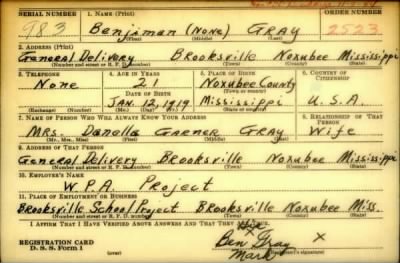 SERIAL NUMBER 1. NAME (Print) ORDER NUMBER
983 Benjiman (None) GRAY 2523
(First) (Middle) (Last)
2. ADDRESS (Print)
General Delivery Brooksville Noxubee Mississippi
(Number and street or R. F. D. number) (Town) (County) (State)
3. TELEPHONE 4. AGE IN YEARS 5. PLACE OF BIRTH 6. COUNTRY OF CITIZENSHIP
None 21 Noxubee County
DATE OF BIRTH (Town or county)
JAN. 12, 1919 Mississippi U.S.A.
(Exchange) (Number) (Mo.) (Day) (Yr.) (State or country)
7. NAME OF PERSON WHO WILL ALWAYS KNOW YOUR ADDRESS 8. RELATIONSHIP OF THAT PERSON
Mrs. Danolla Garner Gray Wife
(Mr., Mrs., Miss) (First) (Middle) (Last)
9. ADDRESS OF THAT PERSON
General Delivery Brooksville Noxubee Mississippi
(Number and street or R. F. D. number) (Town) (County) (State)
10. EMPLOYER'S NAME
W.P.A. Project
11. PLACE OF EMPLOYMENT OR BUSINESS
Brooksville School Project Brooksville Noxubee Miss.
(Number and street or R. F. D. number) (Town) (County) (State)
I AFFIRM THAT I HAVE VERIFIED ABOVE ANSWERS AND THAT THEY ARE TRUE.
REGISTRATION CARD
D. S. S. Form 1
his
Ben Gray X
Mark